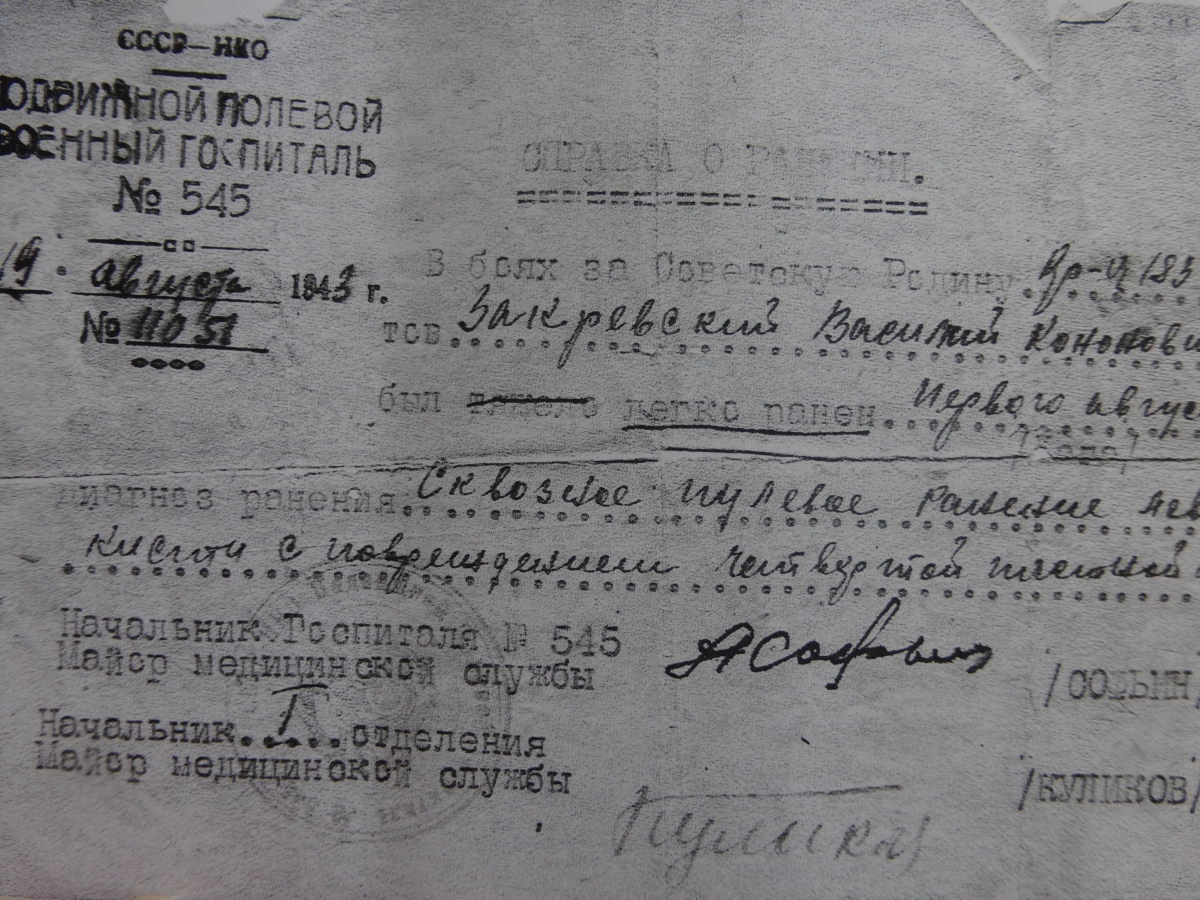 СССР—НКО
ПОДВИЖНОЙ ПОЛЕВОЙ
ВОЕННЫЙ ГОСПИТАЛЬ
№ 545
19. августа 1943 г.
№ 11051
СПРАВКА О РАНЕНИИ.
В боях за Советскую Родину
тов. Закревский Василий Кононови
был тяжело легко ранен. Первого авгус
/дата/
Диагноз ранения Сквозное пулевое ранение лев
кисти с повреждением четвертой пястной
Начальник Госпиталя № 545
Майор медицинской службы
/СОВЬИН/
Начальник I отделения
Майор медицинской службы
/КУЛИКОВ/